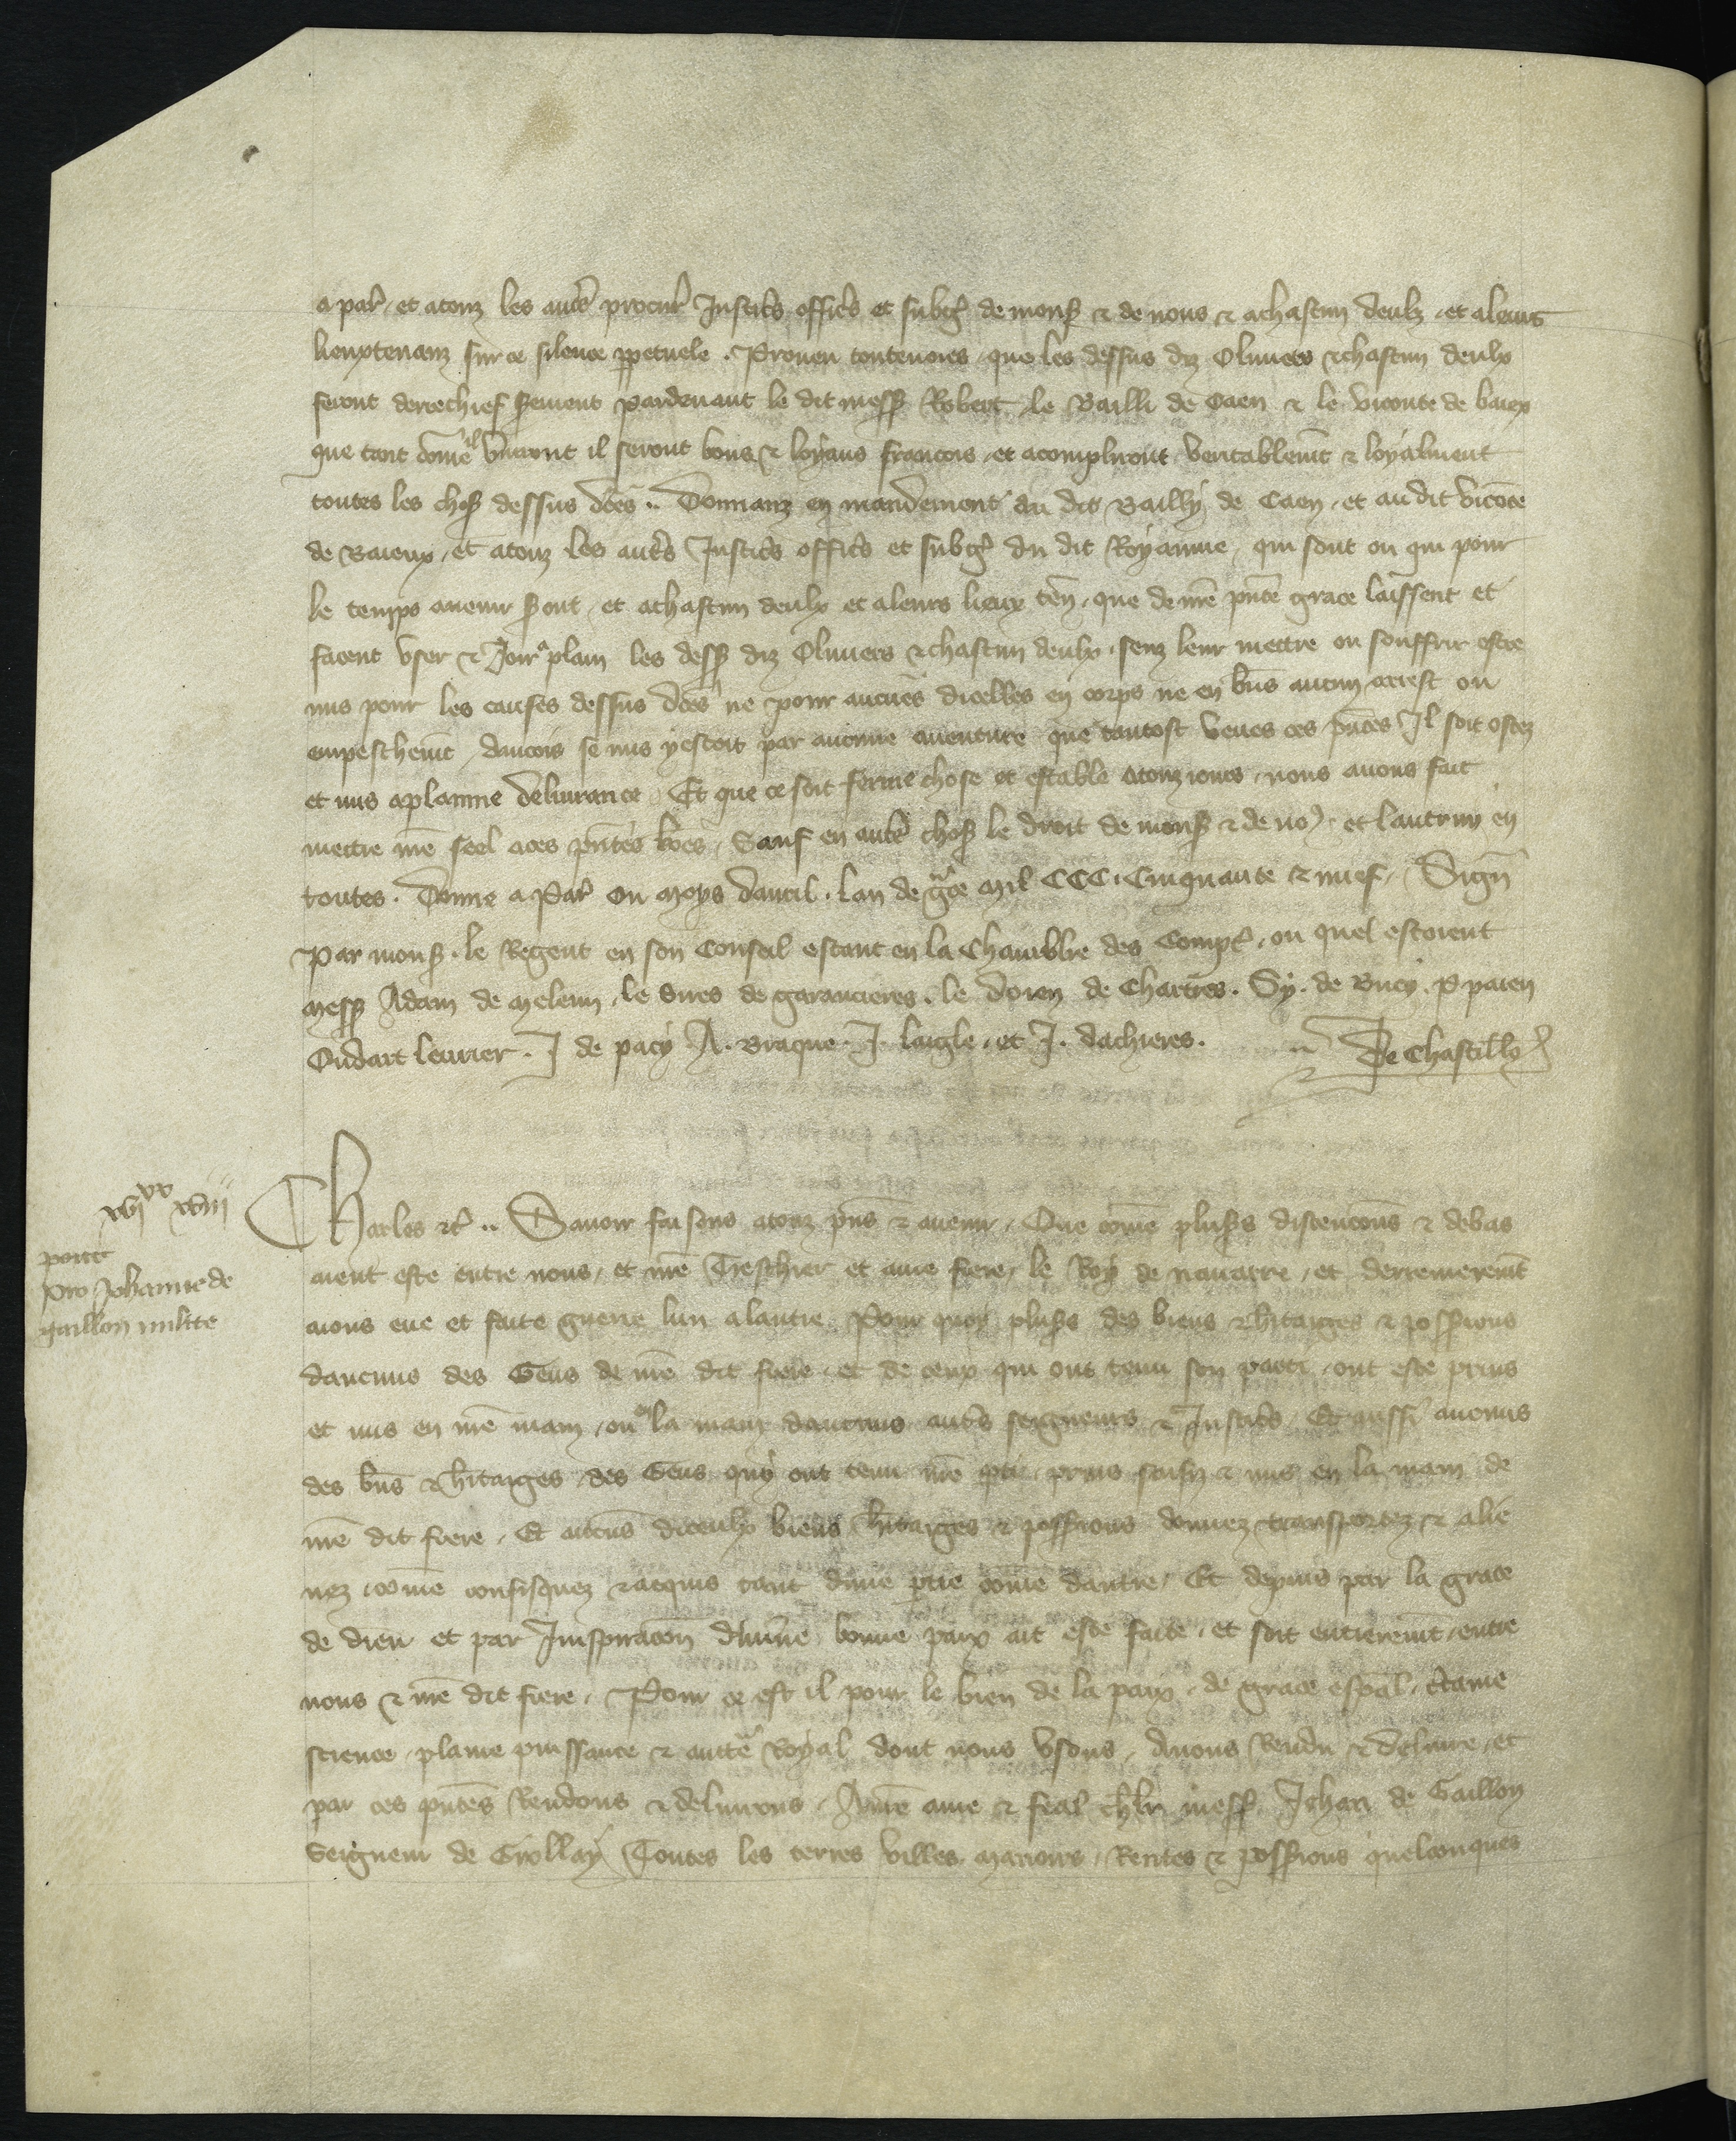 a par̾ et a touz les aut̾s procur̾ Justic̾s offic̾s et subg̾ de mons̾ & de nous & a chascun deulz et a leurs
lieuxtenanz sur ce silence ꝑpetuele . Proueu toutevoies que les dessus diz Oliviers & chascun deulx
feront derrechief s̾rement pardevant le dit mess̾ Robert le Bailli de Caen & le viconte de baiex
que tant com̄e il vivront il seront bons & loyaus francois et acompliront veritablem̄t & loyalment
toutes les chos̾ dessus d̄c̄es .. Donnanz en mandement au dit Bailly de Caen et au dit vicōte
de Baieux et a touz les aut̾s Justic̾s offic̾s et subg̾ du dit Royaume qui sont ou qui pour
le temps avenir s̾ont et a chascun deulx et a leurs lieux teñ que de nr̄e p̄nte grace laissent et
facent user & Joir a plain les dess̾ diz Oliviers & chascun deulx senz leur mettre ou souffrir estre
mis pour les causes dessus d̄c̄es ne pour aucunes dicelles en corps ne en b̄n̄s aucun arrest ou
empeschem̄t Aincois se mis y estoit par aucune aventure que tantost veues ces p̄ntes Il soit ostez
et mis a plaine delivrance Et que ce soit ferme chose et estable a touz iours nous avons fait
mettre nr̄e seel a ces p̄ntes l̄r̄es Sauf en aut̾s chos̾ le droit de mons̾ & de no9 et lautruy en
toutes . Donne a Par̾ ou moys davril . lan de gr̄ce Mil CCC . Cinquante & nuef . Sign̄
Par mons̾ . le Regent en son Conseil estant en la Chambre des Compt̾ ou quel estoient
Mess̾ Adam de Meleun le sires de garancieres . le doien de Chartres . Sy . de Bucy . P paien
Oudart levrier . J de pacy A . Braque . J . laigle et J . dachieres . .. De Chastillꝯ

xvj^xx xviij
port̾
pro Johanne de
gaillon milite

Charles &c̾ .. Savoir faisons a touz p̄ns & avenir Que com̄e plus̾s discencōns & debas
aient este entre nous et nr̄e Treschier et ame frere le Roy de navarre et derrenierem̄t
aions eue et faite guerre lun a lautre Pour quoy plus̾s des biens & h̾itaiges & poss̾ions
daucuns des Gens de nr̄e dit frere et de ceux qui ont tenu son parti ont este prins
et mis en nr̄e main ou en la main daucuns aut̾s seigneurs & Justic̾s Et aussi aucuns
des b̄n̄s & h̾itaiges des Gens quy ont tenu nr̄e ꝑtie prins saisiz & mis en la main de
nr̄e dit frere Et aucuns diceulx biens h̾itaiges & poss̾ions donnez transportez & alie
nez com̄e confisquez & acquis tant dune ꝑtie com̄e dautre Et depuis par la grace
de dieu et par Inspirac̄on divine bonne paix ait este faite et soit entierem̄t entre
nous & nr̄e dit frere Pour ce est il pour le bien de la paix de grace esp̄al c̾taine
science plaine puissance & auct̾e Royal dont nous usons Avons Rendu & delivre et
par ces p̄ntes Rendons & delivrons A nr̄e ame & feal ch̄lr mess̾ Jehan de Gaillon
Seigneur de Grollay Toutes les terres villes manoirs Rentes & poss̾ions quelconques